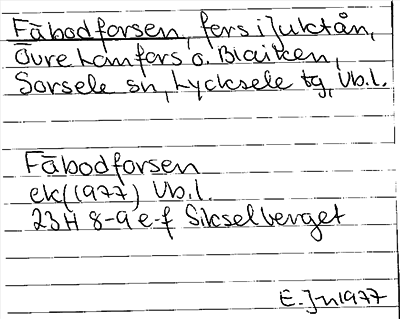 Fäbodforsen, fors i Juktån,
Övre Kamfors o. Blaiken,
Sorsele sn, Lycksele tg, Vb.l.
Fäbodforsen
ek (1977) Vb.l.
23H 8-9 e-f Sikselberget
E. Jn 1977